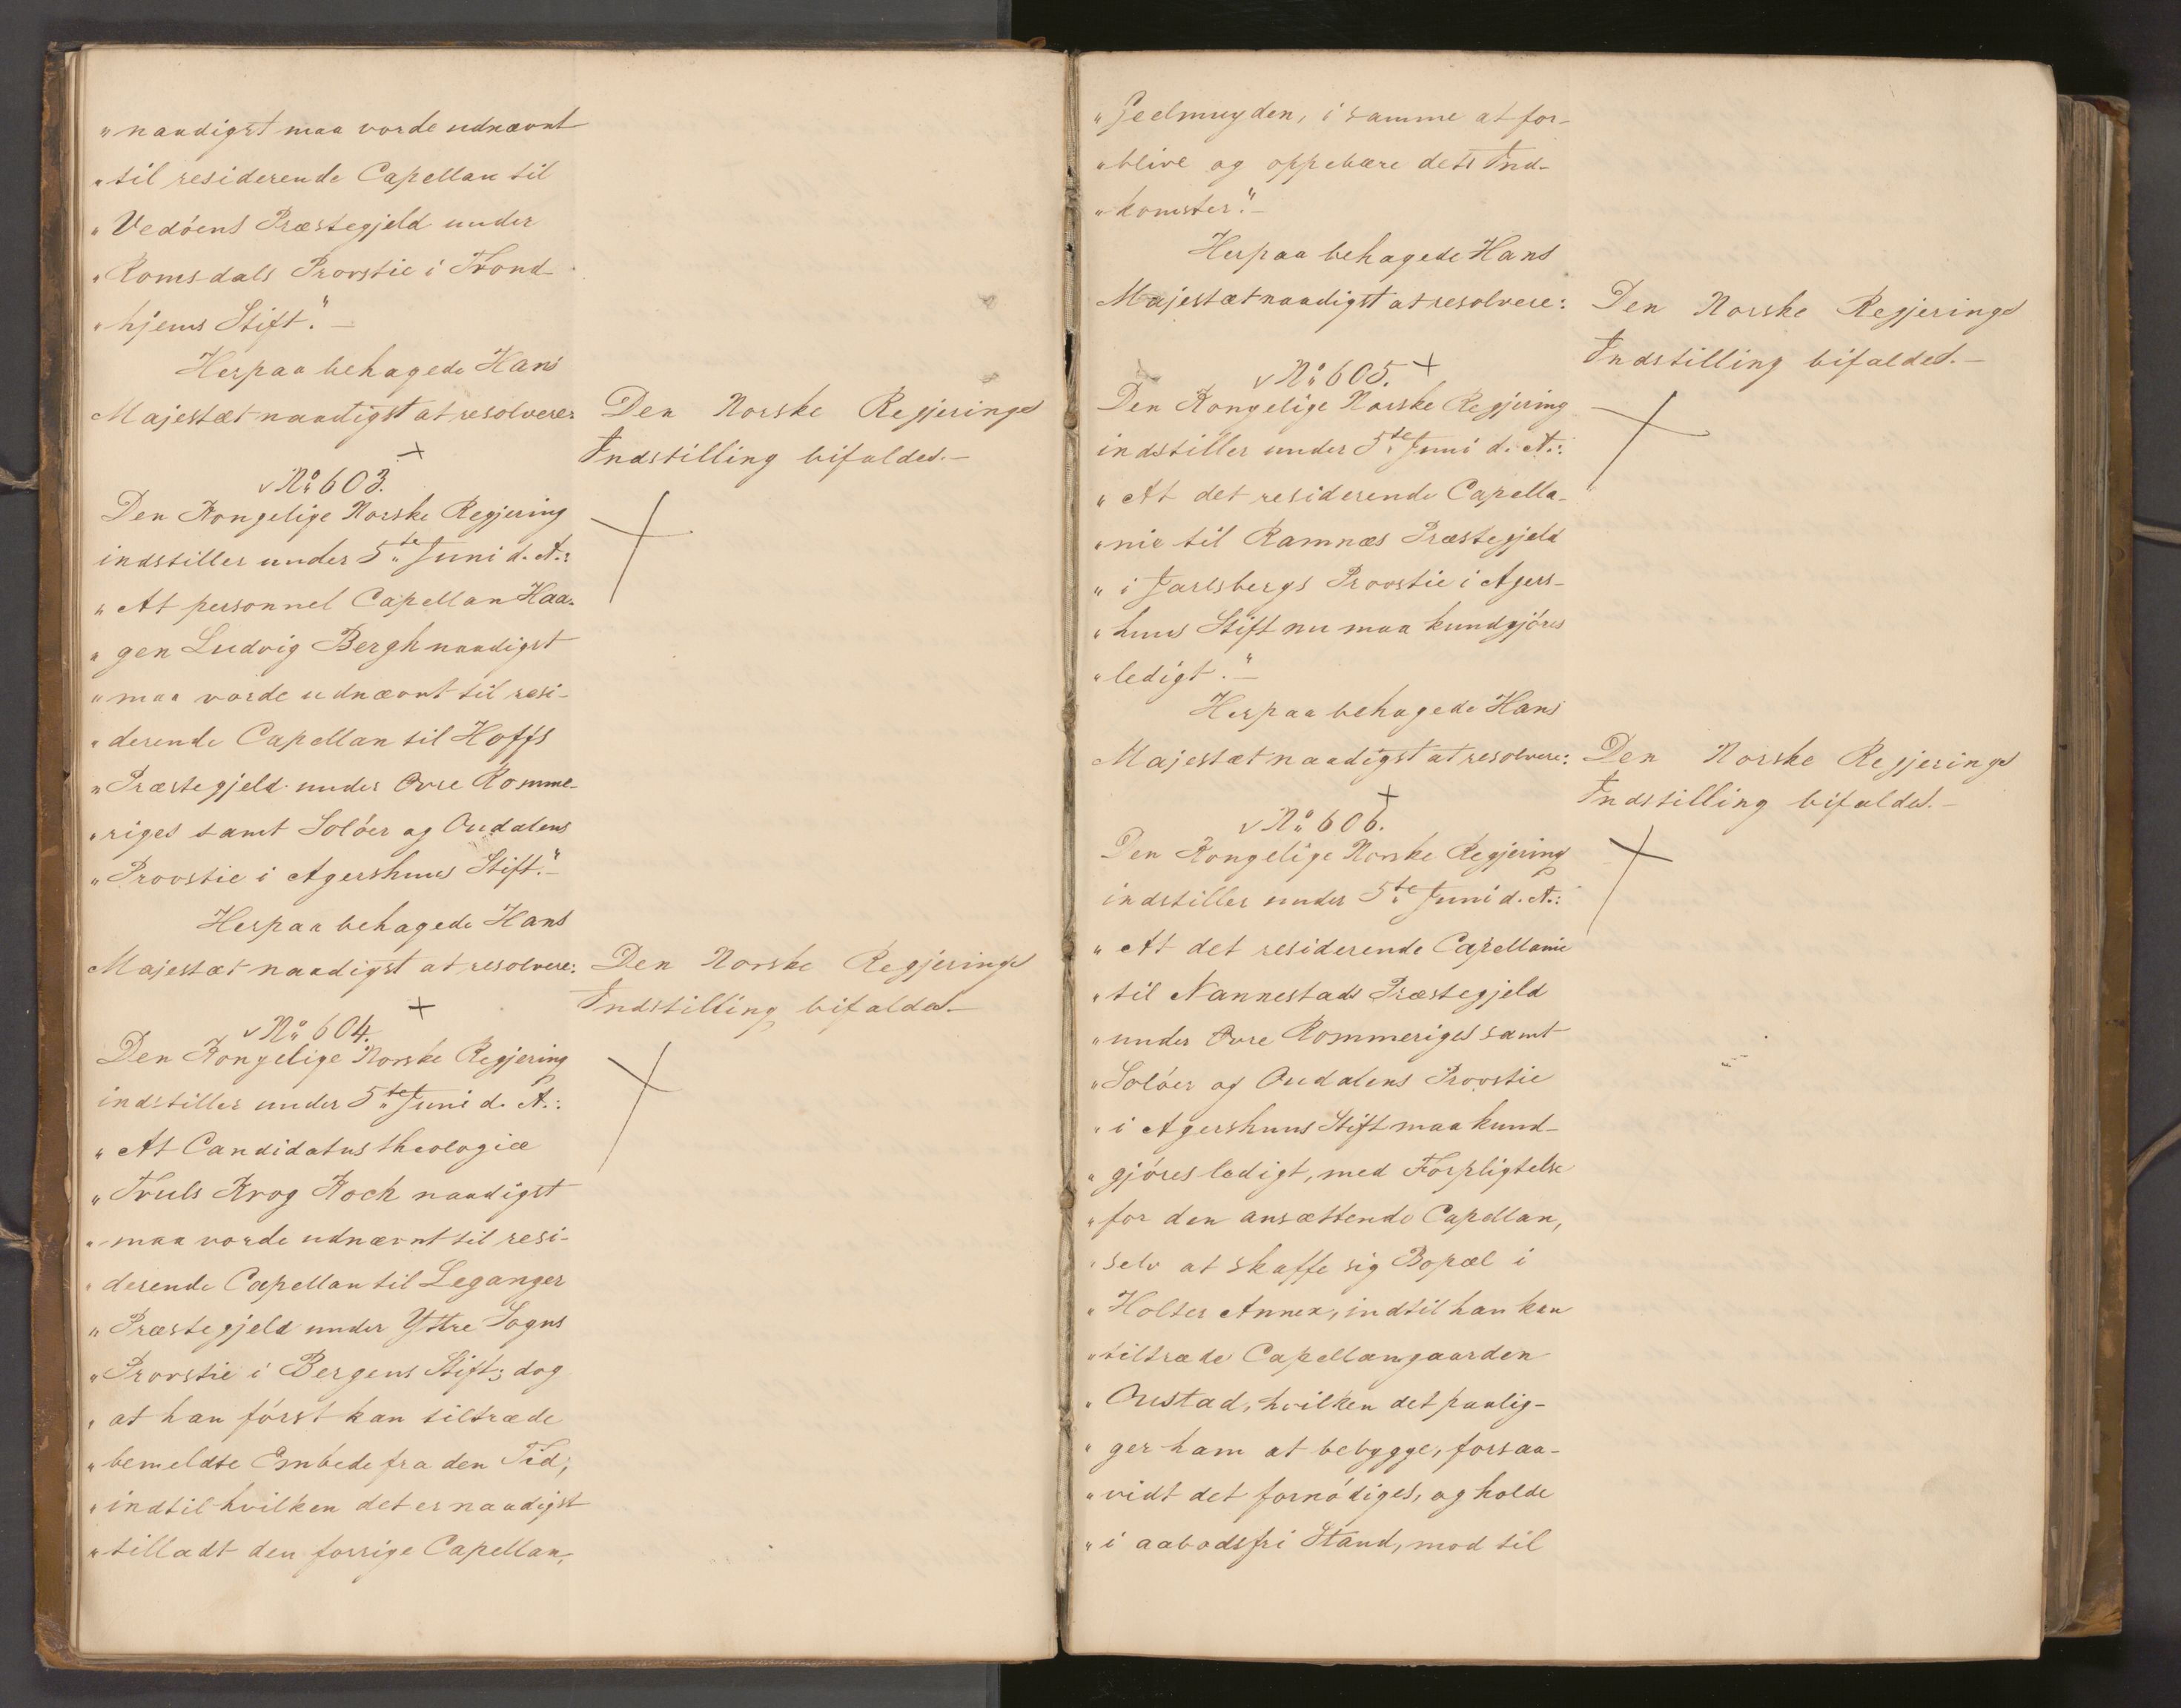 „naadigst maa vorde udnævnt
„til residerende Capellan til
„Vedöens Præstegjeld under
„Romsdals Provstie i Trond-
„hjems Stift.“ —
Herpaa behagede Hans
Majestæt naadigst at resolvere:
Den Norske Regjerings
Indstilling bifaldes. —
No 603.
Den Kongelige Norske Regjering
indstiller under 5te Juni d. A.:
„At personnel Capellan Haa-
„gen Ludvig Bergh naadigst
„maa vorde udnævnt til resi-
„derende Capellan til Hoffs
„Præstegjeld under Øvre Romme-
„riges samt Solöer og Oudalens
„Provstie i Agershuus Stift.“ —
Herpaa behagede Hans
Majestæt naadigst at resolvere:
Den Norske Regjerings
Indstilling bifaldes. —
No 604.
Den Kongelige Norske Regjering
indstiller under 5te Juni d. A.:
„At Candidatus theologiæ
„Truls Krog Kock naadigst
„maa vorde udnævnt til resi-
„derende Capellan til Leganger
„Præstegjeld under Yttre Sogns
„Provstie i Bergens Stift; dog
„at han först kan tiltræde
„bemeldte Embede fra den Tid,
„indtil hvilken det er naadigst
„tilladt den forrige Capellan,
„Geelmuyden, i samme at for-
„blive og oppebære dets Ind-
„komster.“ —
Herpaa behagede Hans
Majestæt naadigst at resolvere:
Den Norske Regjerings
Indstilling bifaldes. —
No 605.
Den Kongelige Norske Regjering
indstiller under 5te Juni d. A.:
„At det residerende Capella-
„nie til Ramnæs Præstegjeld
„i Jarlsbergs Provstie i Agers-
„huus Stift nu maa kundgjöres
„ledigt.“ —
Herpaa behagede Hans
Majestæt naadigst at resolvere:
Den Norske Regjerings
Indstilling bifaldes. —
No 606.
Den Kongelige Norske Regjering
indstiller under 5te Juni d. A.:
„At det residerende Capellanie
„til Nannestads Præstegjeld
„under Øvre Rommeriges samt
„Solöer og Oudalens Provstie
„i Agershuus Stift maa kund-
„gjöres ledigt, med Forpligtelse
„for den ansættende Capellan,
„selv at skaffe sig Bopæl i
„Holter Annex, indtil han kan
„tiltræde Capellangaarden
„Oustad, hvilken det paalig-
„ger ham at bebygge, forsaa-
„vidt det fornödiges, og holde
„i aabodsfri Stand, mod til